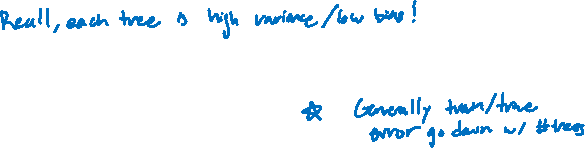 Recall, each tree is high variance/low bias!
☆ Generally train/true
error go down w/ #trees